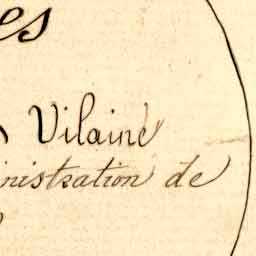 es
Vilaine
nistration de